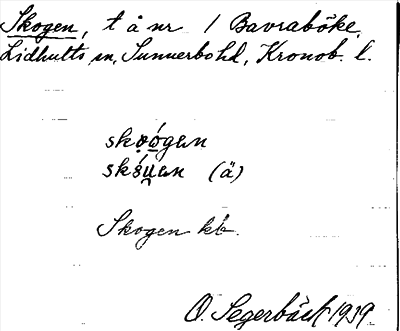 Skogen, t å nr 1 Bavraböke,
Lidhults sn, Sunnerbo hd, Kronob. l.
skoógen
(ä)
Skogen kb.
O. Segerbäck 1939